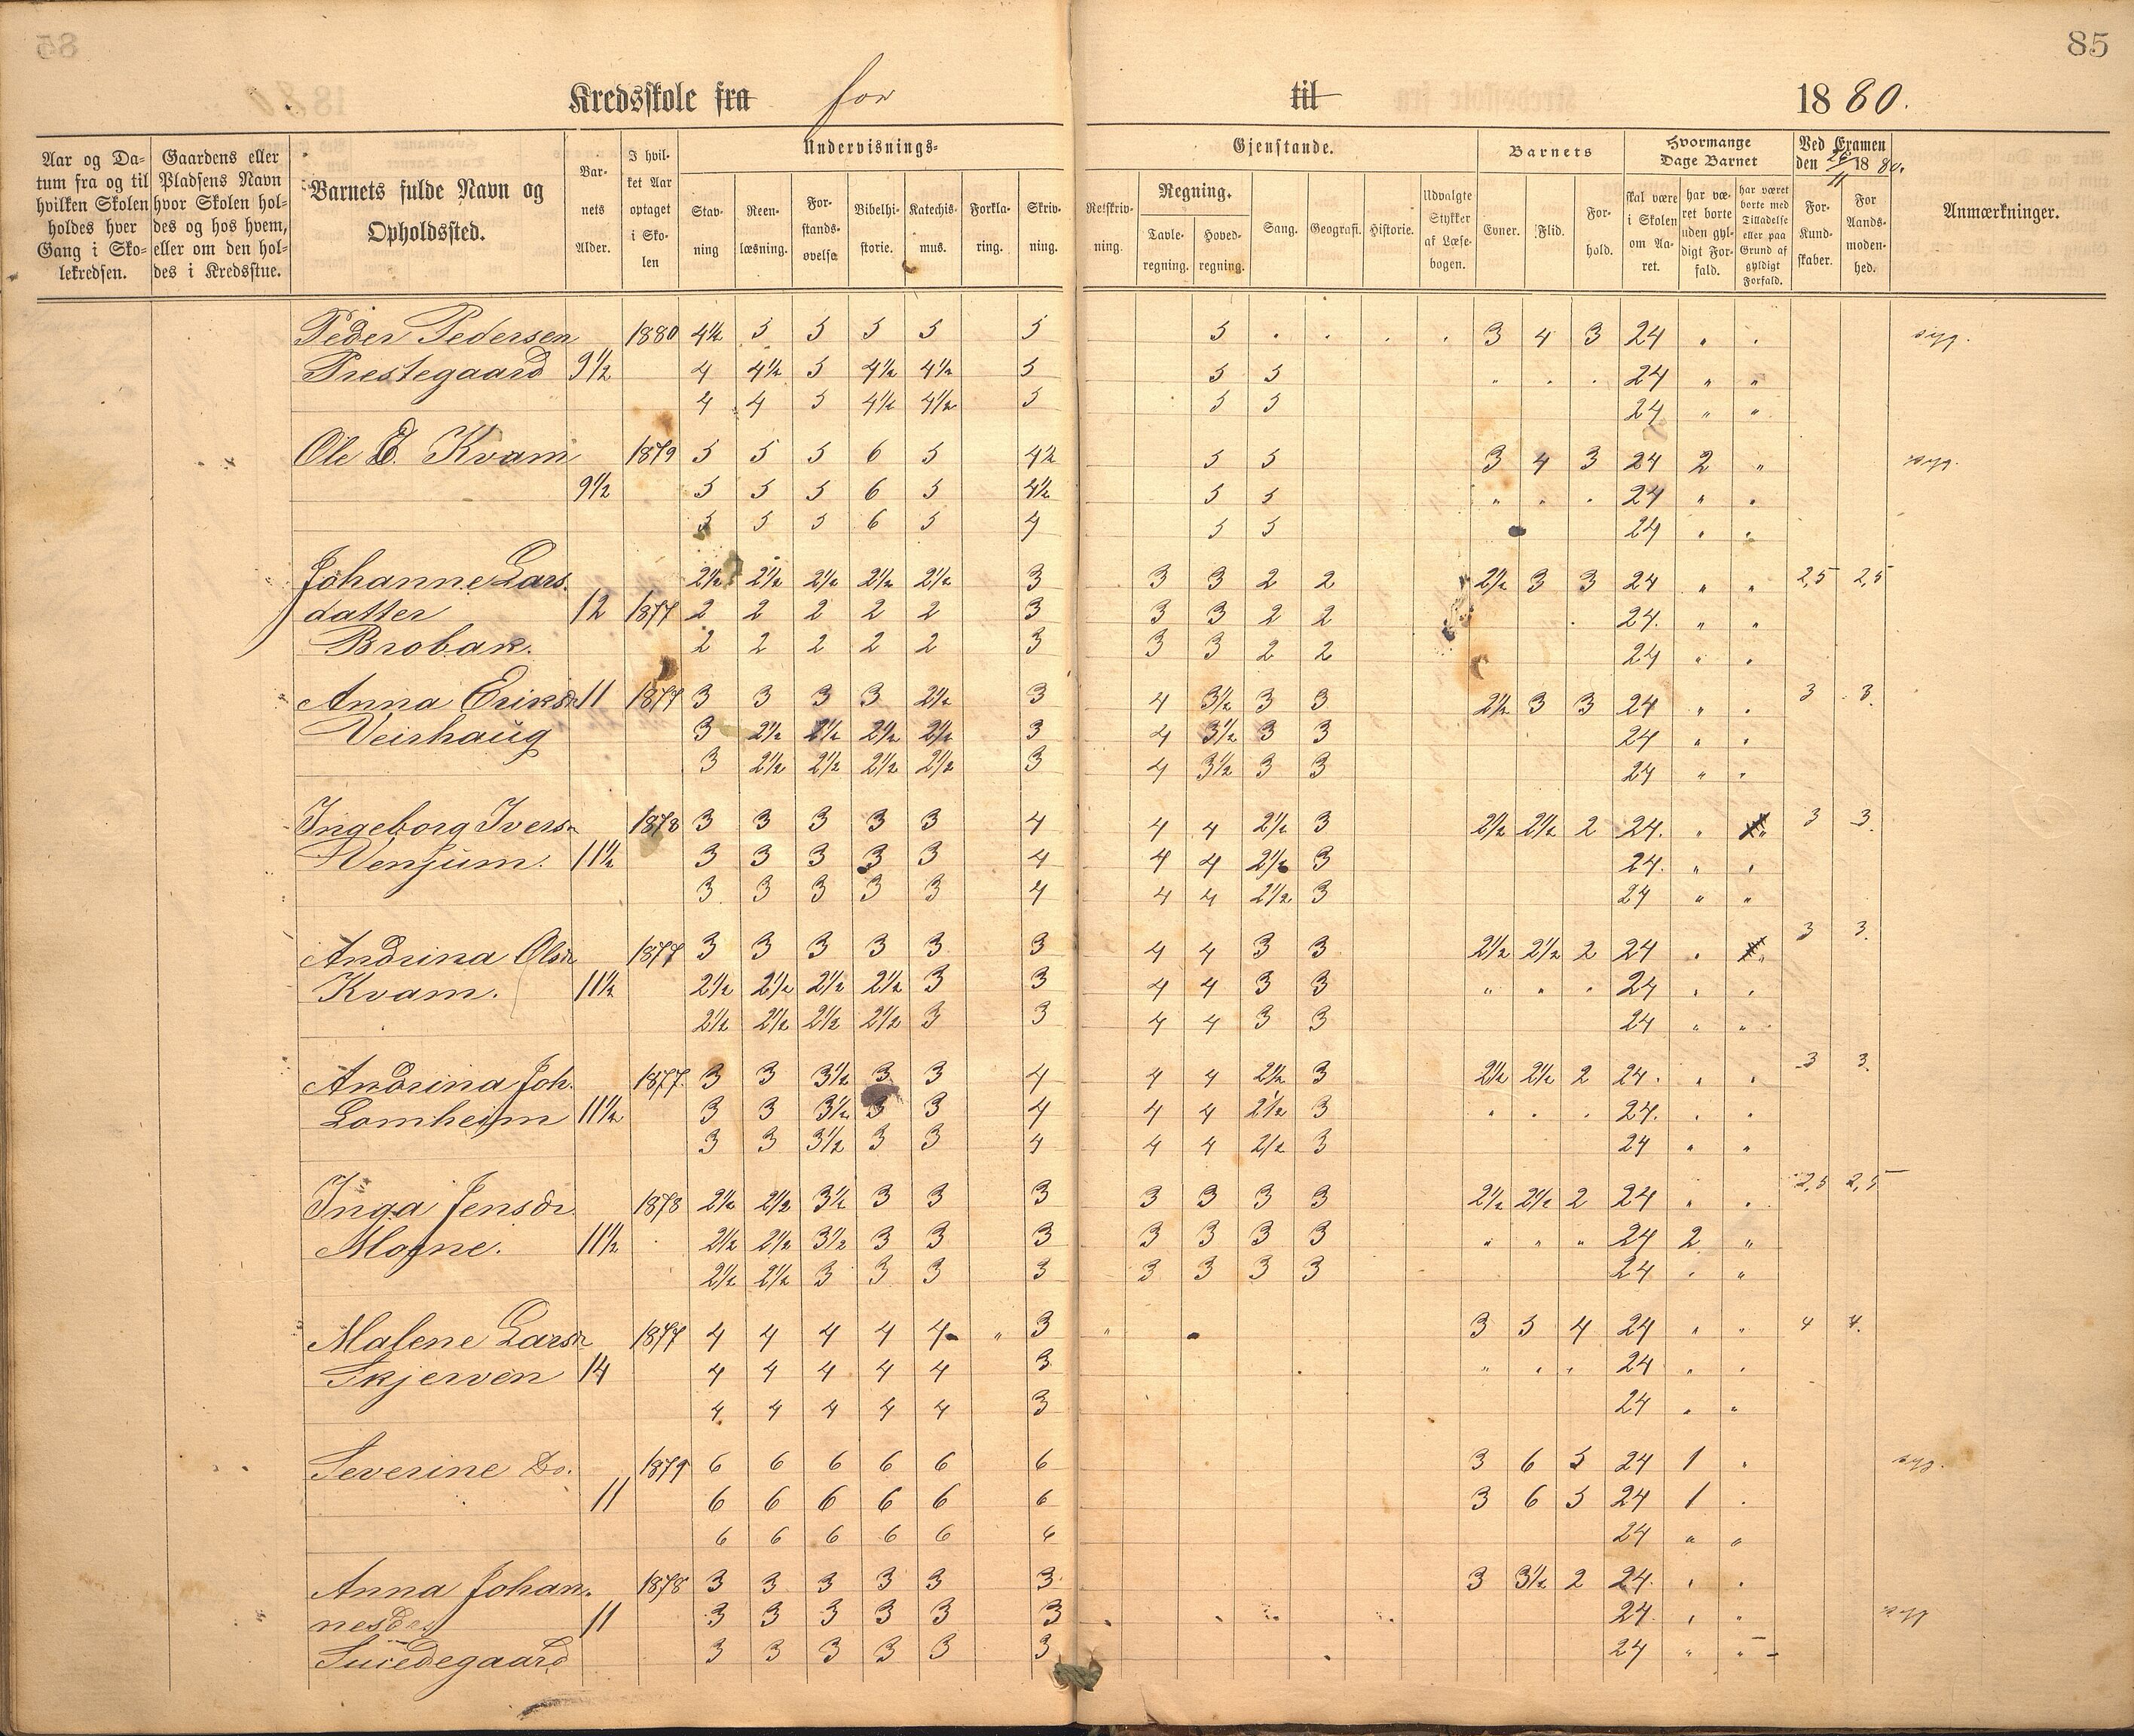 85
Kredsskole fra for til 1880.
Aar og Da=
tum fra og til
hvilken Skolen
holdes hver
Gang i Sko=
lekredsen.
Gaardens eller
Pladsens Navn
hvor Skolen hol=
des og hos hvem,
eller om den hol=
des i Kredsstue.
Barnets fulde Navn og
Opholdssted.
Bar=
nets
Alder.
I hvil=
ket Aar
optaget
i Sko=
len
Undervisnings=
Stav=
ning
Reen=
læsning.
For=
stands=
øvelse
Bibelhi=
storie.
Katechis=
mus.
Forkla=
ring.
Skriv=
ning.
Gjenstande.
Retskriv=
ning.
Regning.
Tavle=
regning.
Hoved=
regning.
Sang.
Geografi.
Historie.
Udvalgte
Stykker
af Læse=
bogen.
Barnets
Evner.
Flid.
For=
hold.
Hvormange
Dage Barnet
skal være
i Skolen
om Aa=
ret.
har væ=
ret borte
uden gyl=
digt For=
fald.
har været
borte med
Tilladelse
eller paa
Grund af
gyldigt
Forfald.
Ved Examen
den 26/11 1880.
For
Kund=
skaber.
For
Aands=
moden=
hed.
Anmærkninger.
Peder Pedersen 1880 4½ 5 5 5 5 5 5 . . . . 3 4 3 24 " . syg.
Prestegaard 9½ 4 4½ 5 4½ 4½ 5 5 5 " . . 24 " "
4 4 5 4½ 4½ 5 5 5 24 " "
Ole E. Kvam 1879 5 5 5 6 5 4½ 5 5 3 4 3 24 2 " syg.
9½ 5 5 5 6 5 4½ 5 5 " . . 24 " .
5 5 5 6 5 4 5 5 24 " "
Johanne Lars. 2½ 2½ 2½ 2½ 2½ 3 3 3 2 2 2½ 3 3 24 " " 2,5 2,5
datter 12 1877 2 2 2 2 2 3 3 3 2 2 24. " "
Brobak. 2 2 2 2 2 3 3 3 2 2 24 " .
Anna Eriksdr 11 1877 3 3 3 3 2½ 3 4 3½ 3 3 2½ 3 3 24 " . 3 3.
Veirhaug 3 2½ 2½ 2½ 2½ 3 4 3½ 3 3 24 " .
3 2½ 2½ 2½ 2½ 3 4 3½ 3 3 24 " "
Ingeborg Iversn 1878 3 3 3 3 3 4 4 4 2½ 3 2½ 2½ 2 24. " " 3 3.
Venjum. 11½ 3 3 3 3 3 4 4 4 2½ 3 24. " .
3 3 3 3 3 4 4 4 2½ 3 24 " "
Andrina Olsdr 1877 3 3 3 3 3 3 4 4 3 3 2½ 2½ 2 24 . " 3 3.
Kvam. 11½ 2½ 2½ 2½ 2½ 3 3 4 4 3 3 " . . 24 . .
2½ 2½ 2½ 2½ 3 3 4 4 3 3 24 " "
Andrina Joh. 1877. 3 3 3½ 3 3 4 4 4 2½ 3 2½ 2½ 2 24. . . 3 3.
Lomheim 11½ 3 3 3½ 3 3 4 4 4 2½ 3 . . . 24. . .
3 3 3½ 3 3 4 4 4 2½ 3 24 " "
Inga Jensdr 1878 2½ 2½ 3½ 3 3 3 3 3 3 3 2½ 2½ 2 24 " . 2,5 2,5
Mogne. 11½ 2½ 2½ 3½ 3 3 3 3 3 3 3 " " " 24 2 "
2½ 2½ 3 3 3 3 3 3 3 3 24 . "
Malene Larsdr 1877 4 4 4 4 4 " 3 " 3 5 4 24 " " 4 4.
Skjerven 14 4 4 4 4 4 3 " . . 24 . .
4 4 4 4 4 3 24 " "
Severine Do. 1879 6 6 6 6 6 6 3 6 5 24 1 . syg.
11 6 6 6 6 6 6 3 6 5 24 1 .
6 6 6 6 6 6 24 " "
Anna Johan. 1878 3 3 3 3 3 3 3 3½ 2 24. . .
nesdr 11 3 3 3 3 3 3 24. . " syg
3 3 3 3 3 3 24 " "